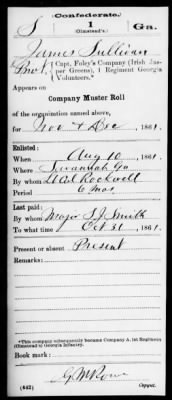 Confederate.
S 1 Ga.
(Olmstead's).
James Sullivan
Pvt., Capt. Foley's Company (Irish Jas-
per Greens), 1 Regiment Georgia
Volunteers.*
Appears on
Company Muster Roll
of the organization named above,
for Nov & Dec, 1861.
Enlisted:
When Aug 10, 1861.
Where Savannah Ga
By whom Lt Col Rockwell
Period 6 mos
Last paid:
By whom Major L J Smith
To what time Oct 31, 1861.
Present or absent Present
Remarks:
*This company subsequently became Company A, 1st Regiment
(Olmstead's) Georgia Infantry.
Book mark:
G M Rowe
(642) Copyist.